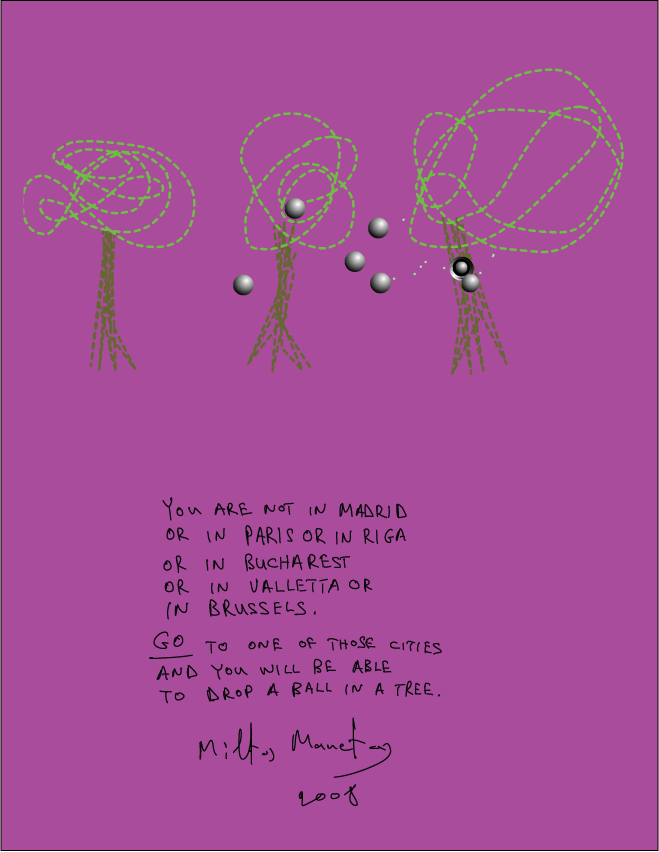 YOU ARE NOT IN MADRID
OR IN PARIS OR IN RIGA
OR IN BUCHAREST
OR IN VALLETTA OR
IN BRUSSELS.
GO TO ONE OF THOSE CITIES
AND YOU WILL BE ABLE
TO DROP A BALL IN A TREE.
Miltos Manetas
2008